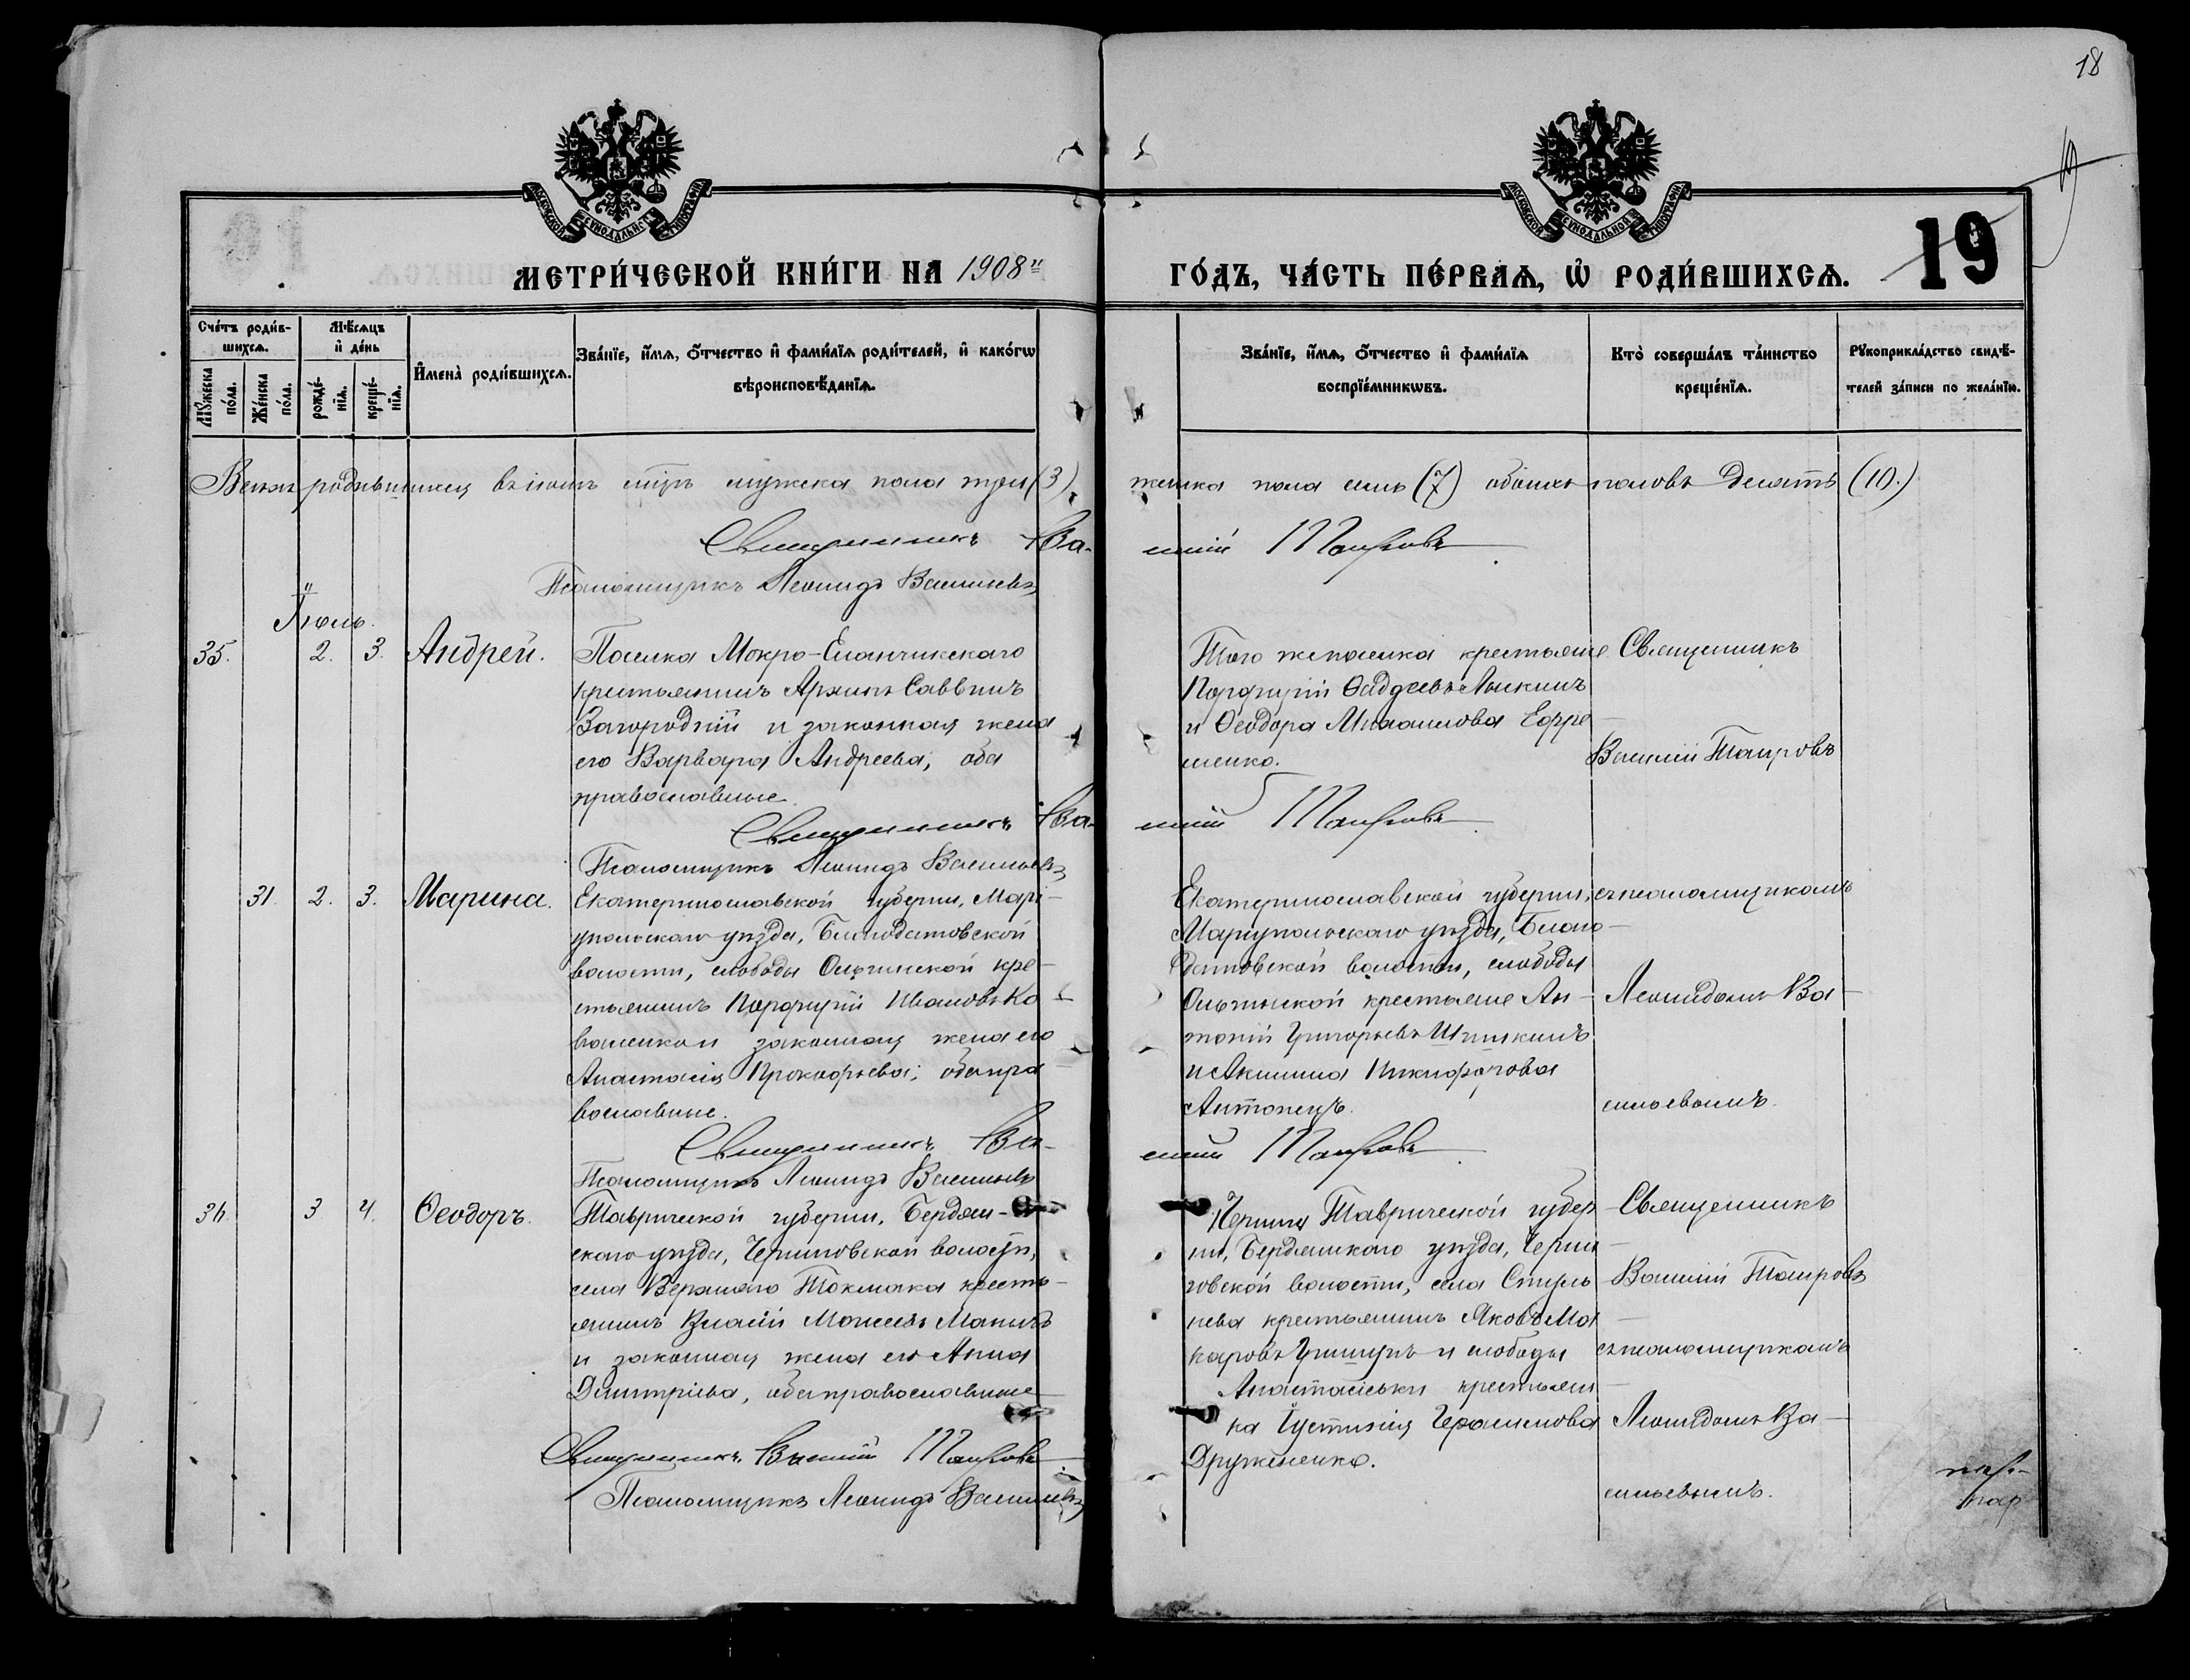 18
19
МЕТРИ́ЧЕСКОЙ КНИ́ГИ НА 1908й
ГО́ДЪ, ЧА́СТЬ ПЕ́РВАѦ, Ѡ҆ РОДИ́ВШИХСѦ.
19
Сче́тъ роди́в-
шихсѧ.
Мꙋ́жеска
по́ла.
Же́нска
по́ла.
Мѣ́сѧцъ
и҆ де́нь
рожде́-
нїѧ.
креще́-
нїѧ.
И҆мена̀ роди́вшихсѧ.
Зва́нїе, и҆́мѧ, ѻ҆́тчество и҆ фами́лїѧ роди́телей, и҆ како́гѡ
вѣроисповѣ́данїѧ.
Зва́нїе, и҆́мѧ, ѻ҆́тчество и҆ фами́лїѧ
воспрїе́мникѡвъ.
Кто̀ соверша́лъ та́инство
креще́нїѧ.
Рꙋкоприкла́дство свидѣ́-
телей за́писи по жела́нїю.
Всехъ родившихся въ іюнѣ мѣсяцѣ мужска пола три (3), женска пола семь (7) обоихъ половъ десять (10.)
Священникъ Василій Таировъ
Псаломщикъ Леонидъ Васильевъ
Іюль.
35. 2. 3. Андрей.
Поселка Мокро-Еланчикскаго
крестьянинъ Архипъ Саввинъ
Загородній и законная жена
его Варвара Андреева, оба
православные.
Того же поселка крестьяне
Порфирій Ѳаддеевъ Лыкинъ
и Ѳеодора Михаилова Ефре-
менко.
Священникъ
Василій Таировъ
Священникъ Василій Таировъ
Псаломщикъ Леонидъ Васильевъ
31. 2. 3. Марина.
Екатеринославской губерніи, Марі-
упольскаго уѣзда, Благодатовской
волости, слободы Ольгинской кре-
стьянинъ Порфирій Ивановъ Ко-
валенко и законная жена его
Анастасія Прокофьева; оба пра-
вославные.
Екатеринославской губерніи,
Маріупольскаго уѣзда, Благо-
датовской волости, слободы
Ольгинской крестьяне Ан-
тоній Григорьевъ Шишкинъ
и Акилина Никифорова
Антонецъ.
съ псаломщикомъ
Леонидомъ Ва-
сильевымъ.
Священникъ Василій Таировъ
Псаломщикъ Леонидъ Васильевъ
36. 3 4. Ѳеодоръ.
Таврической губерніи, Бердян-
скаго уѣзда, Черниговской волости,
села Верхняго Токмака кресть-
янинъ Власій Моисеевъ
и законная жена его Анна
Димитріева, оба православные
Таврической губер-
ніи, Бердянскаго уѣзда, Черни-
говской волости, села Стуль-
нева крестьянинъ Яковъ Ма-
каровъ и слободы
крестьян-
ка Іустинія Герасимова
Друженко.
Священникъ
Василій Таировъ
съ псаломщикомъ
Леонидомъ Ва-
сильевымъ.
Священникъ Василій Таировъ
Псаломщикъ Леонидъ Васильевъ